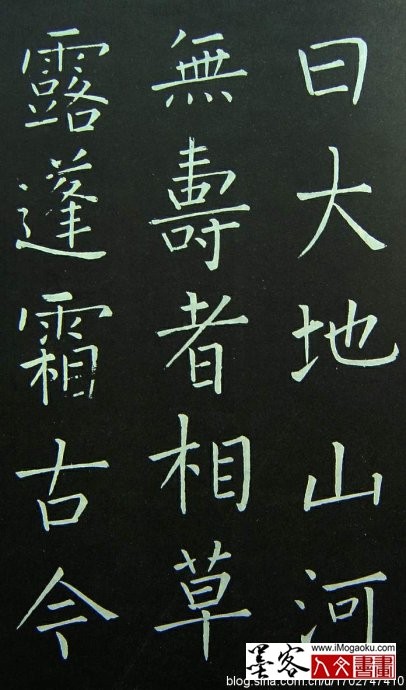 曰大地山河
無壽者相草
露蓬霜古今
墨客
www.iMogaoku.com
人文書畫
blog.sina.com.cn/u/1702747410